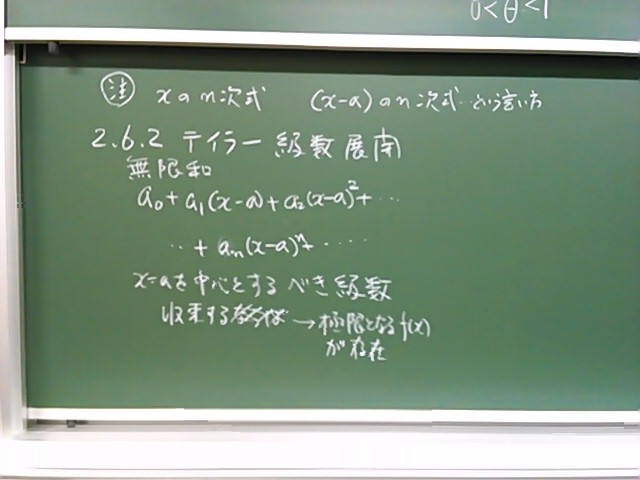 0<θ<1
注 xのn次式 (x-a)のn次式 という言い方
2.6.2 テイラー級数展開
無限和
a₀+a₁(x-a)+a₂(x-a)²+…
…+aₙ(x-a)ⁿ+……
x=aを中心とするべき級数
収束する →極限となるf(x)
が存在